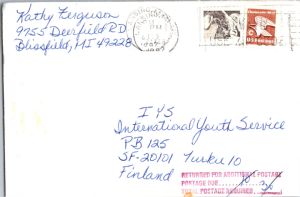 Kathy Ferguson
9755 Deerfield RD
Blissfield, MI 49228
I Y S
International Youth Service
PB 125
SF-20101 Turku 10
Finland
RETURNED FOR ADDITIONAL POSTAGE
POSTAGE DUE
TOTAL POSTAGE REQUIRED